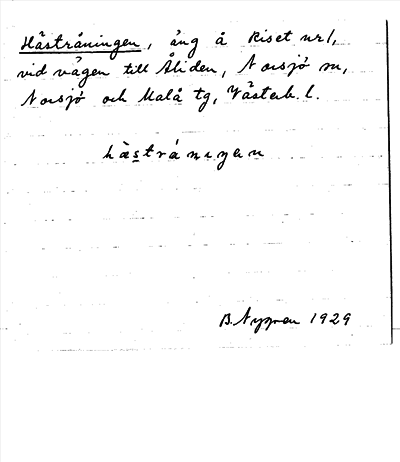 Hästråningen, äng å Riset nr 1,
vid vägen till Åliden, Norsjö sn,
Norsjö och Malå tg, Västerb. l.
hästrániŋɘn
B. Nygren 1929